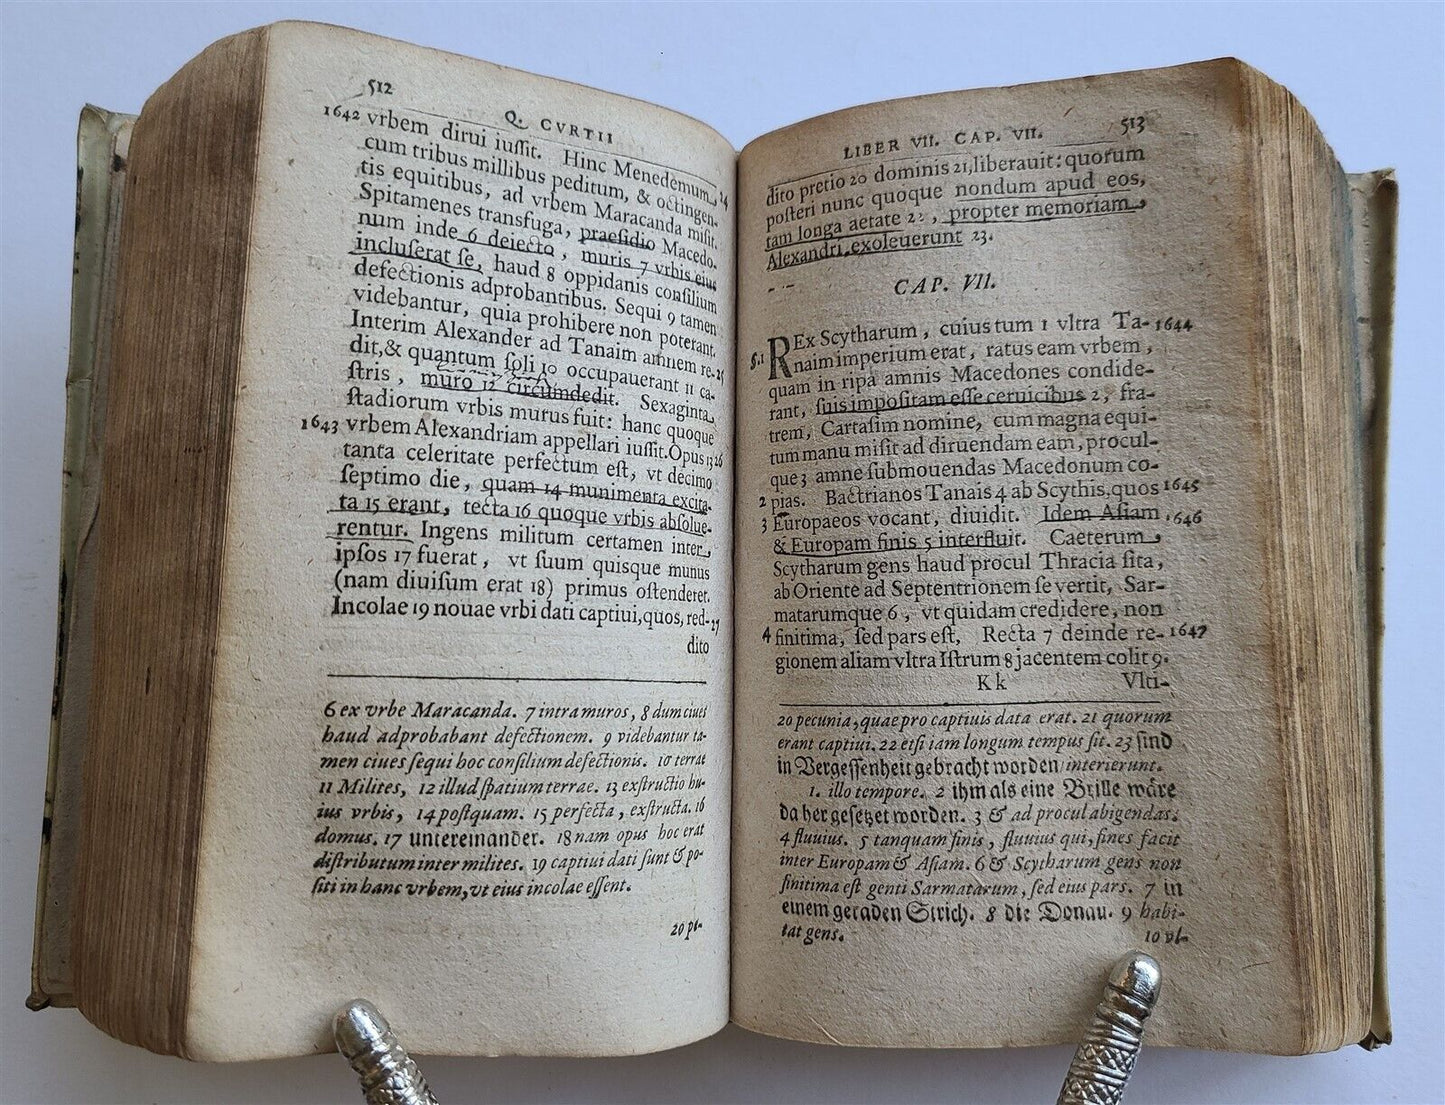 512
Q. CVRTII
1642 vrbem dirui iuſſit. Hinc Menedemum, 24
cum tribus millibus peditum, & octingen-
tis equitibus, ad vrbem Maracanda miſit.
Spitamenes transfuga, praeſidio Macedo-
num inde 6 deiecto, muris 7 vrbis eius
incluſerat ſe, haud 8 oppidanis conſilium
defectionis adprobantibus. Sequi 9 tamen
videbantur, quia prohibere non poterant.
Interim Alexander ad Tanaim amnem re- 25
dit, & quantum ſoli 10 occupauerant 11 ca-
ſtris, muro 12 circumdedit. Sexaginta
ſtadiorum vrbis murus fuit: hanc quoque
1643 vrbem Alexandriam appellari iuſſit. Opus 13 26
tanta celeritate perfectum eſt, vt decimo
ſeptimo die, quam 14 munimenta excita-
ta 15 erant, tecta 16 quoque vrbis abſolue-
rentur. Ingens militum certamen inter
ipſos 17 fuerat, vt ſuum quisque munus
(nam diuiſum erat 18) primus oſtenderet.
Incolae 19 nouae vrbi dati captiui, quos, red- 27
dito
6 ex vrbe Maracanda. 7 intra muros, 8 dum ciues
haud adprobabant defectionem. 9 videbantur ta-
men ciues ſequi hoc conſilium defectionis. 10 terrae
11 Milites, 12 illud ſpatium terrae. 13 exſtructio hu-
ius vrbis, 14 poſtquam. 15 perfecta, exſtructa. 16
domus. 17 untereinander. 18 nam opus hoc erat
diſtributum inter milites. 19 captiui dati ſunt & po-
ſiti in hanc vrbem, vt eius incolae eſſent.
20 pe-
LIBER VII. CAP. VII. 513
dito pretio 20 dominis 21, liberauit: quorum
poſteri nunc quoque nondum apud eos,
tam longa aetate 22, propter memoriam
Alexandri, exoleuerunt 23.
CAP. VII.
§. 1 REx Scytharum, cuius tum 1 vltra Ta- 1644
naim imperium erat, ratus eam vrbem,
quam in ripa amnis Macedones condide-
rant, ſuis impoſitam eſſe ceruicibus 2, fra-
trem, Cartaſim nomine, cum magna equi-
tum manu miſit ad diruendam eam, procul-
que 3 amne ſubmouendas Macedonum co-
2 pias. Bactrianos Tanais 4 ab Scythis, quos 1645
3 Europaeos vocant, diuidit. Idem Aſiam 1646
& Europam finis 5 interfluit. Caeterum
Scytharum gens haud procul Thracia ſita,
ab Oriente ad Septentrionem ſe vertit, Sar-
matarumque 6, vt quidam credidere, non
4 finitima, ſed pars eſt, Recta 7 deinde re- 1647
gionem aliam vltra Iſtrum 8 jacentem colit 9.
K k Vlti-
20 pecunia, quae pro captiuis data erat. 21 quorum
erant captiui. 22 etſi iam longum tempus ſit. 23 ſind
in Vergeſſenheit gebracht worden interierunt.
1. illo tempore. 2 ihm als eine Brille wäre
da her geſetzet worden. 3 & ad procul abigendas.
4 fluuius. 5 tanquam finis, fluuius qui, fines facit
inter Europam & Aſiam. 6 & Scytharum gens non
finitima eſt genti Sarmatarum, ſed eius pars. 7 in
einem geraden Strich. 8 die Donau. 9 habi-
tat gens.
10 vl-